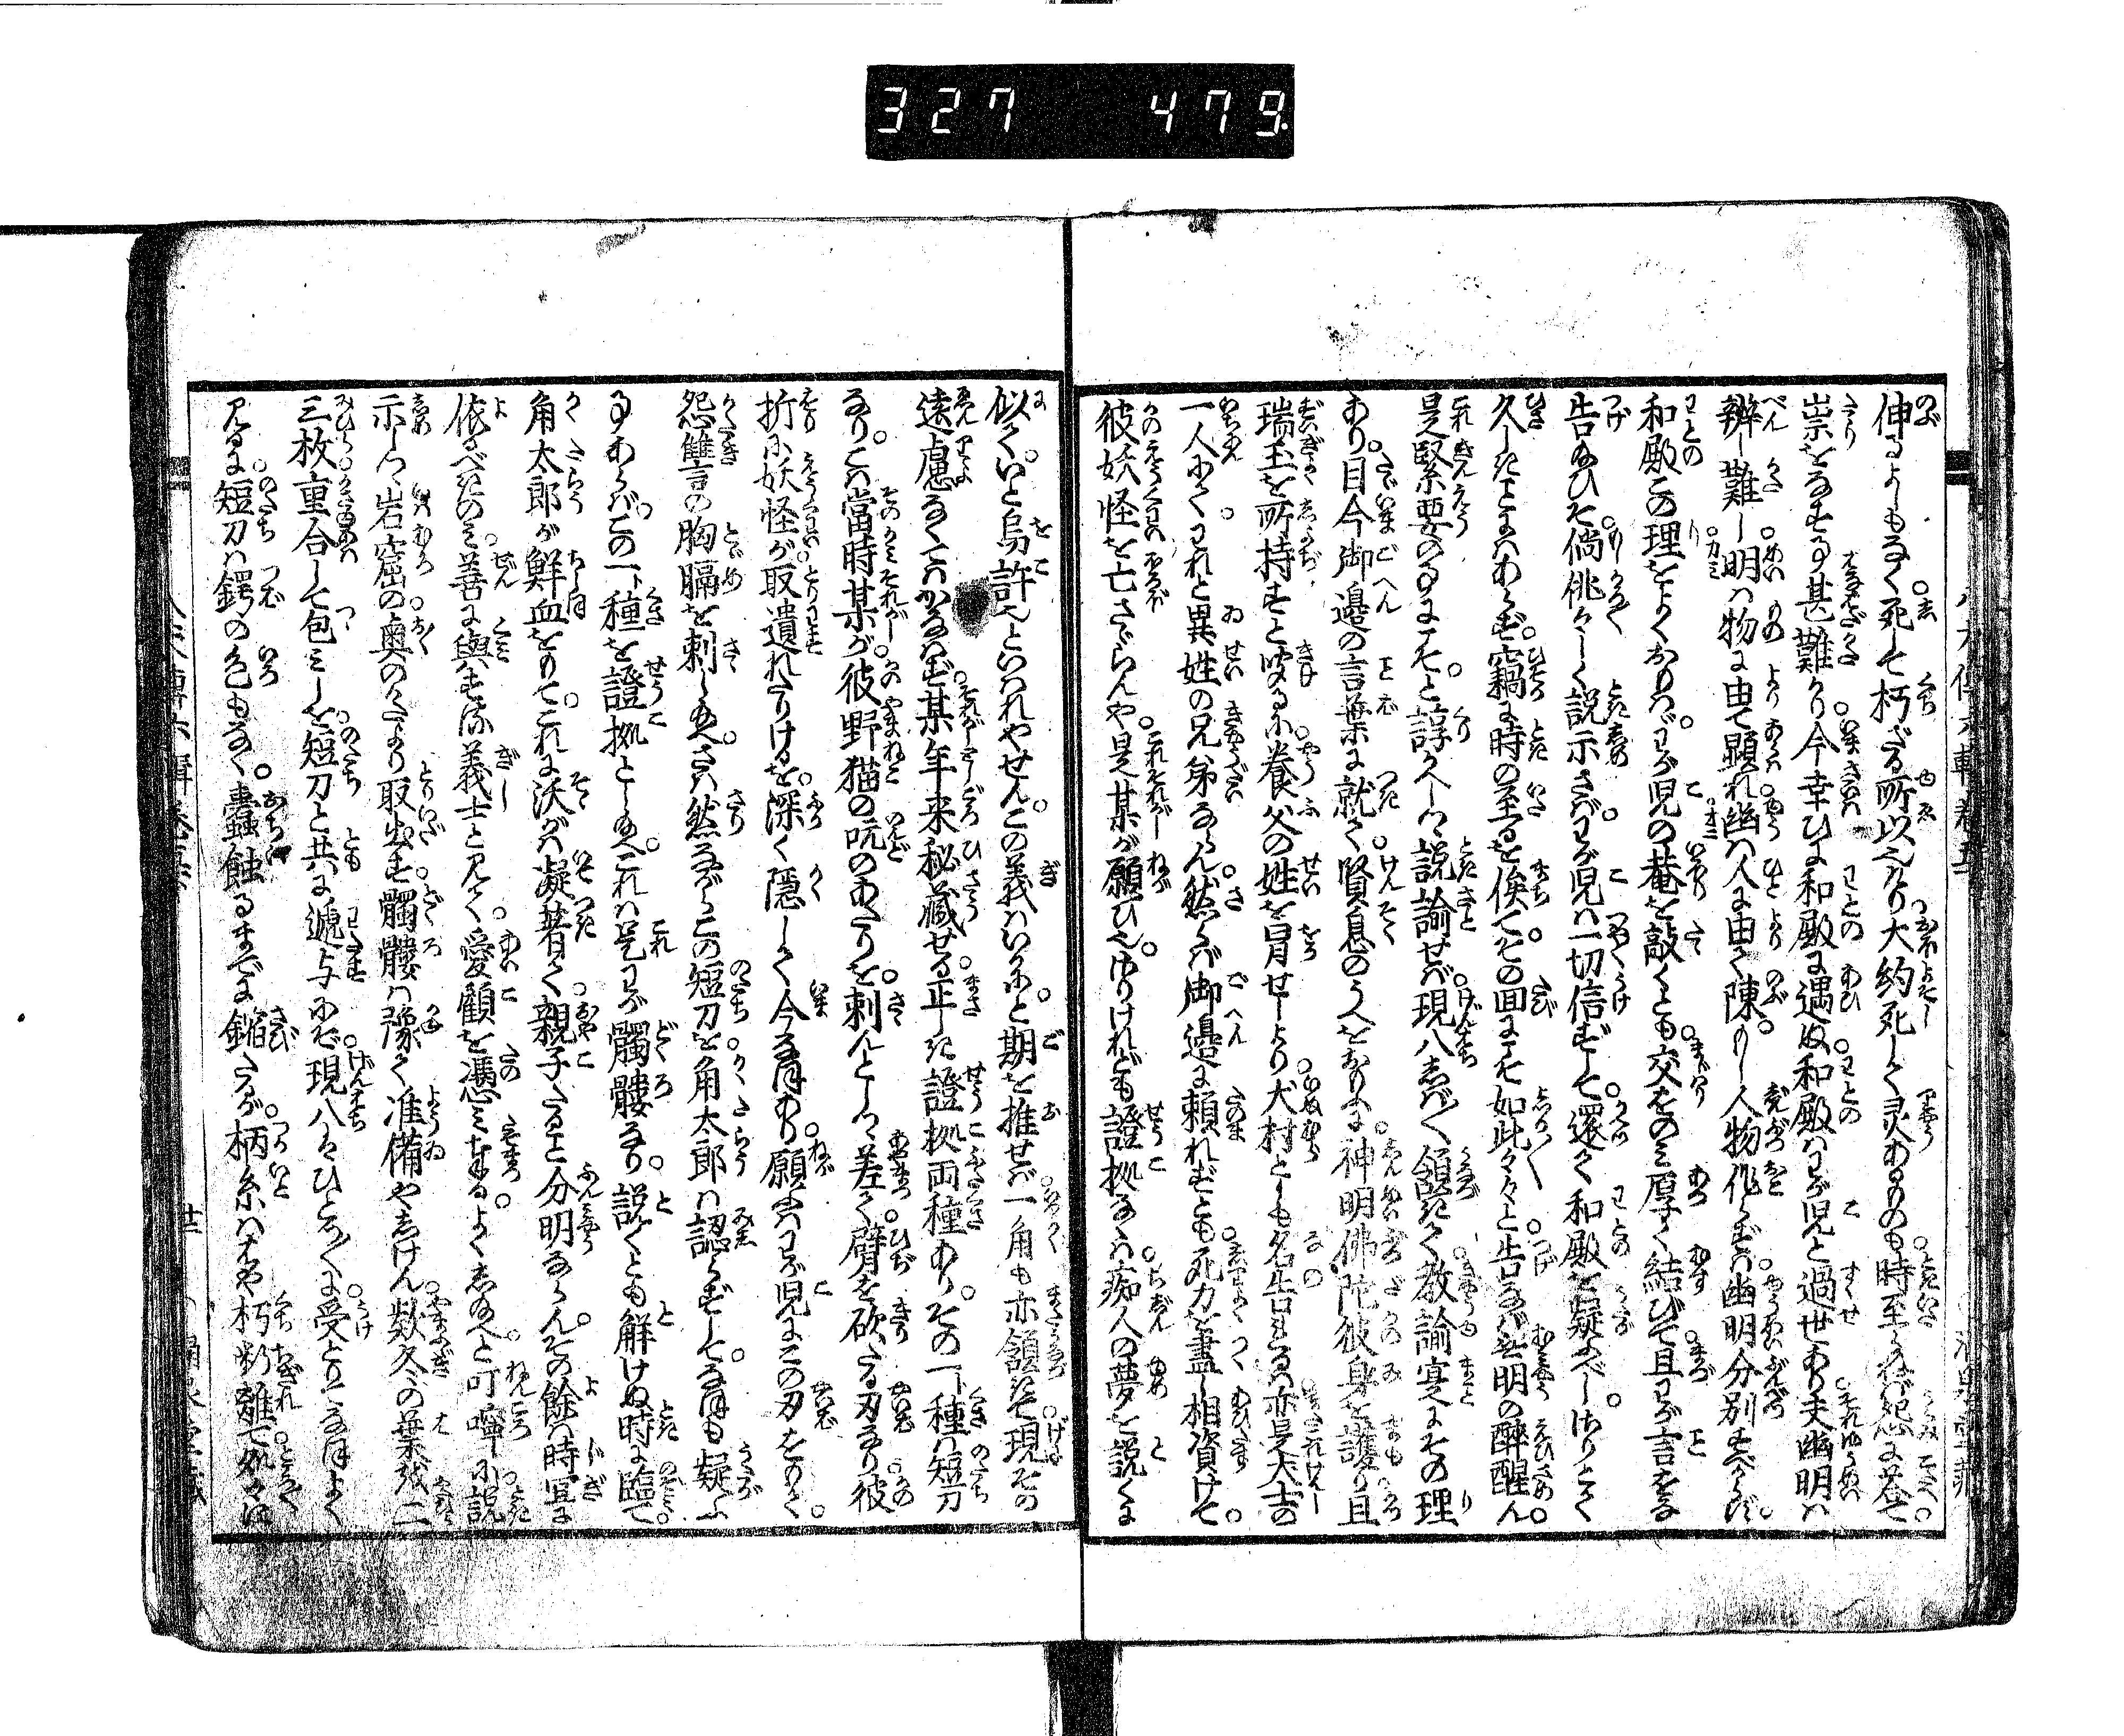 327 479
伸るよしもなく死して朽ざる所以なり大約死して灵あるもの も時至らざれば怨に答て
祟をなす事甚難かり今幸ひに和殿に遇ぬ和殿はわが児と過世あり夫幽明は
辨じ難し明は物に由て顕れ幽は人に由て陳。もし人物作らずは幽明分別すべからず。
和殿この理をよくおもはゞ。わが児の菴を敲くとも交をのみ厚く結びて且わが言をな
告給ひそ倘佻々しく説示さばわが児は一切信ぜずして。還て和殿を疑ふべし。さりとて
久しきことにはあらず。竊に時の至るを俟て。その回にこそ如此々々と告るならば無明の醉醒ん。
是緊要の事にこそ。と諄かへしつゝ説諭せば。現八しば〳〵領きて教諭寔にその理
あり。目今御邊の言葉に就て。賢息のうへをおもふに。神明佛陀彼身を護り且
瑞玉を所持すと聞るに。養父の姓を冒せしより犬村としも名告れるは亦是大士の
一人にて。われと異姓の兄弟ならん。然らば御邊に頼れずとも死力を盡し相資けて。
彼妖怪を亡さでやは。是某が願ひ也。さりけれども證拠なくは。痴人の夢を説くに
似て。いと烏許也といはれやせん。この義はいかにと期を推せば一角も亦領きて。現その
遠慮なくてはかなはず。某年来秘藏せる。正しき證拠両種あり。その一種は短刀
なり。こは當時某が。彼野猫の吭のあたりを。刺んとしつゝ差て臂を砍たる刃なり彼
折に妖怪が。取遺れたりけるを。深く隠して今なほあり。願ふはわが児にこの刃をもて。
怨讐言の胸膈を刺し給へ。さは然ながらこの短刀を。角太郎は認らずして。なほも疑ふ
事あらば。この一種を證拠とし給へ。これは是わが髑髏なり。説くとも解けぬ時に臨て。
角太郎が鮮血をもて。これに沃がは凝着て。親子たること分明ならん。その餘は時冝に
依るべきのミ。善に與する義士と見て。愛顧を憑ミまゐらする。よくし給へと叮嚀に説
示しつゝ岩窟の奥のかたより取出す。髑髏は豫て准備やしけん。款冬の葉伐二
三枚重合して包ミしを。短刀と共に遞与にぞ。現八はひとつ〳〵に。受とりつゝなほよく
見るに。短刀は鍔の色もなく。蠹蝕るまでに鏥たるが。柄糸はたゞ朽断離て処々は